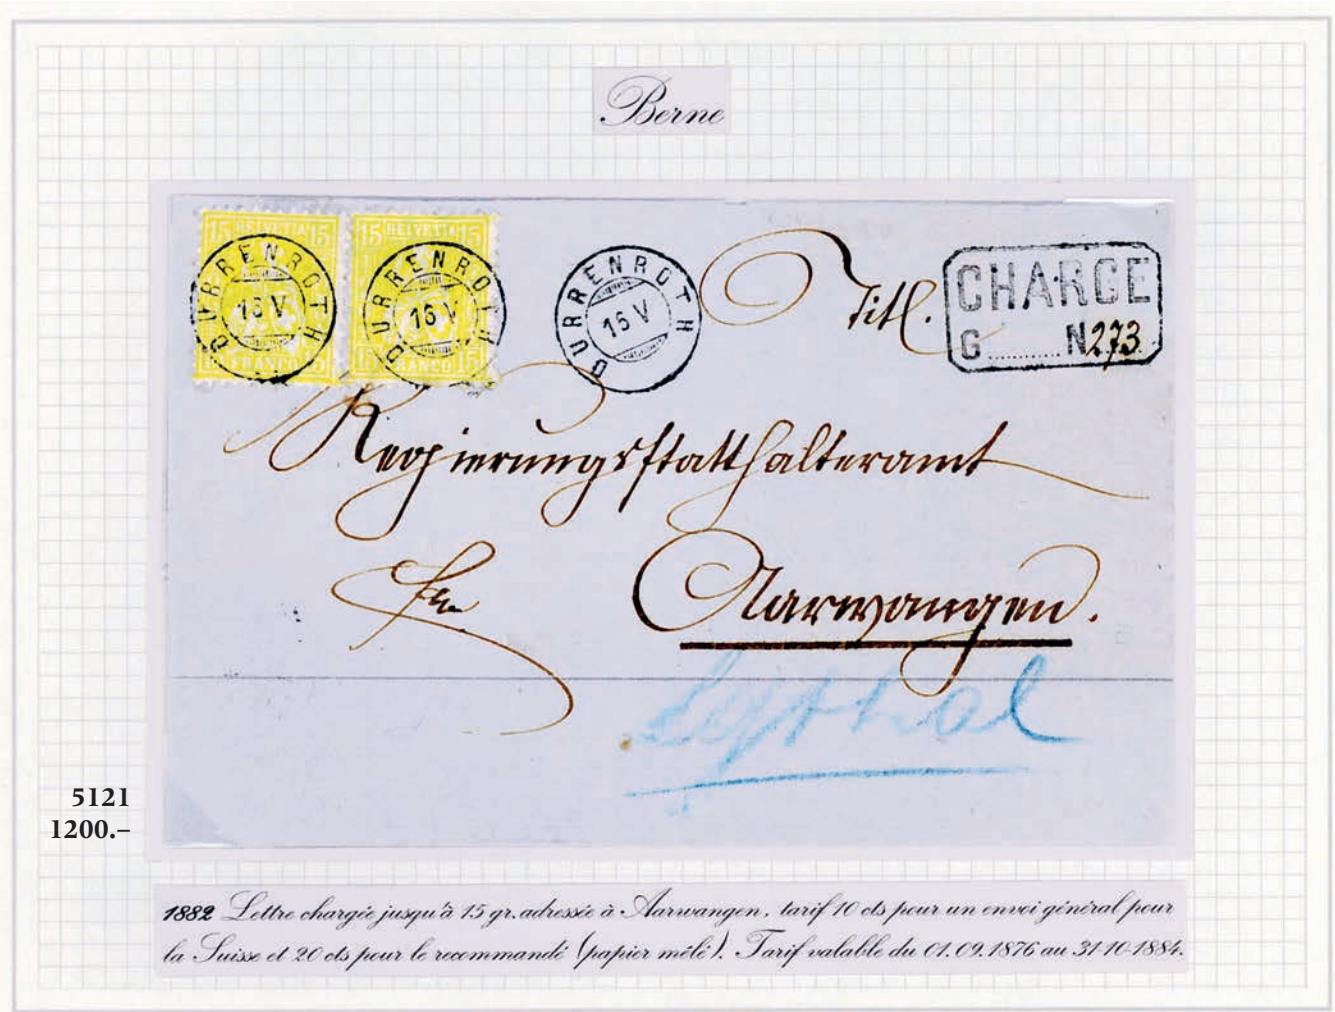 Berne
15 HELVETIA 15
15 HELVETIA 15
DURRENROTH
16 V
DURRENROTH
16 V
DURRENROTH
16 V
FRANCO 15
15 FRANCO 15
Titl.
CHARGE
G.......... N 273
Regierungsstatthalteramt
Aarwangen.
5121
1200.–
1882 Lettre chargée jusqu'à 15 gr. adressée à Aarwangen, tarif 10 cts pour un envoi général pour
la Suisse et 20 cts pour le recommandé (papier mêlé). Tarif valable du 01.09.1876 au 31-10-1884.